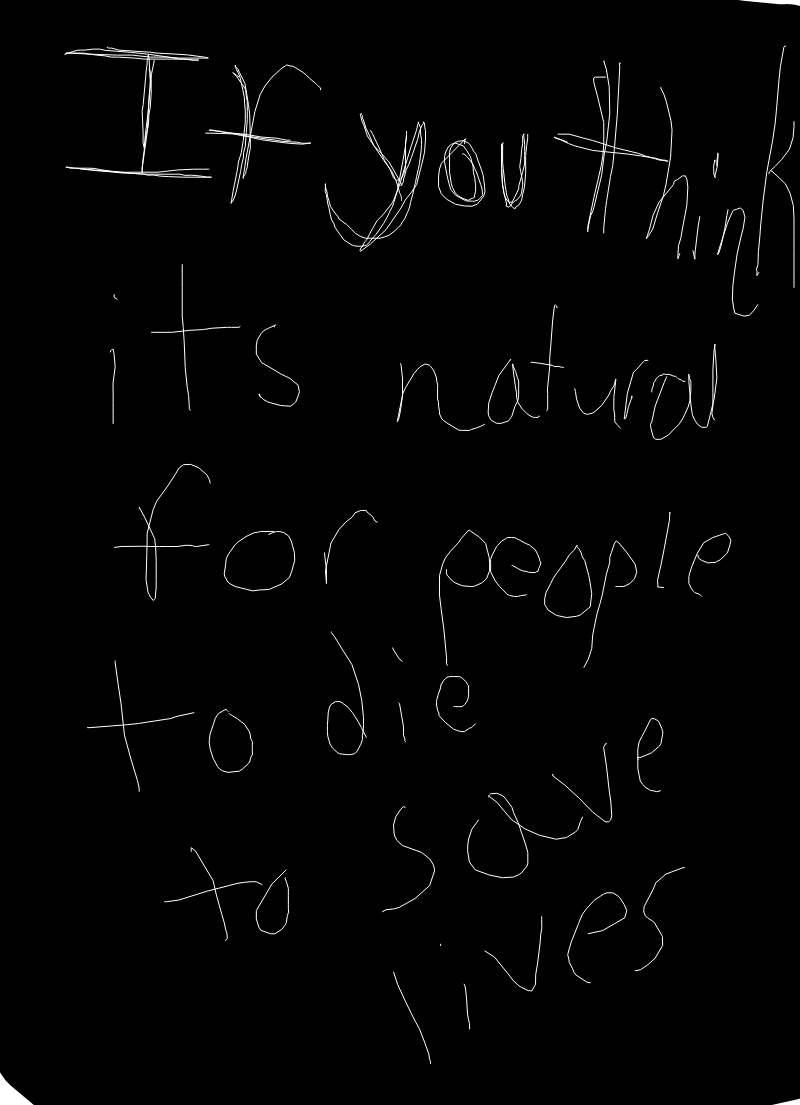 If you think
its natural
for people
to die
to save
lives